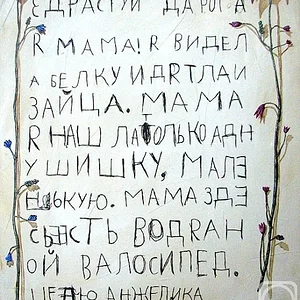 ЗДРАСТУЙ ДАРОГА
Я МАМА! Я ВИДЕЛ
А БЕЛКУ И ДЯТЛАИ
ЗАЙЦА. МАМА
Я НАШЛА ТОЛЬКО АДН
У ШИШКУ, МАЛЕ
НЬКУЮ. МАМА ЗДЕ
СЬ ЕСТЬ ВОДЯАН
ОЙ ВАЛОСИПЕД.
ЦЕЛУЮ АНЖЕЛИКА